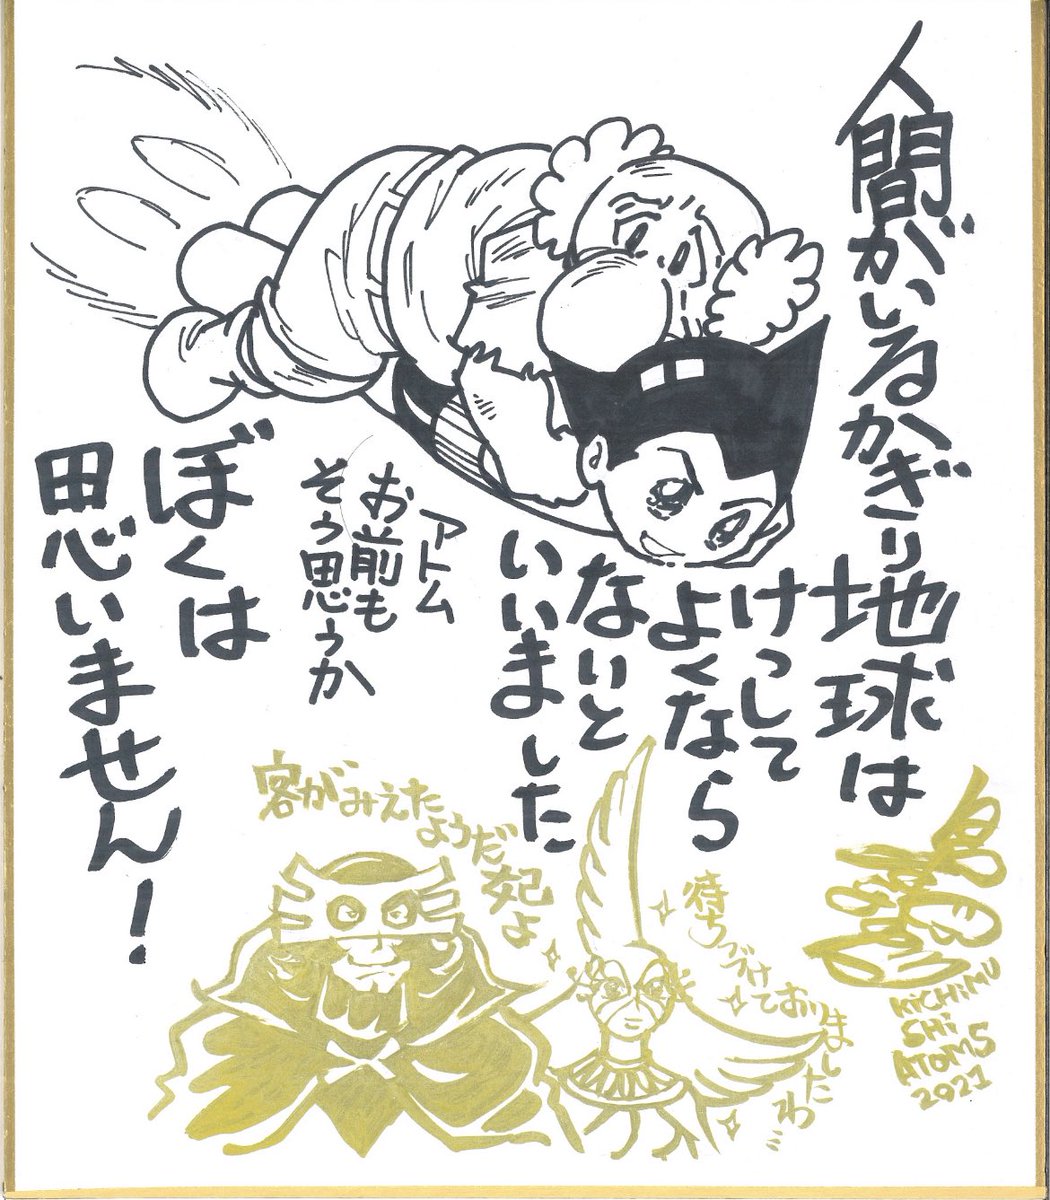 人間がいるかぎり
地球は
けっして
よくなら
ないと
いいました
アトム
お前も
そう思うか
ぼくは
思いません!
客がみえた
ようだ
妃よ
待ちつづけておりましたわ…
KICHIMU
SHI
ATOMS
2021